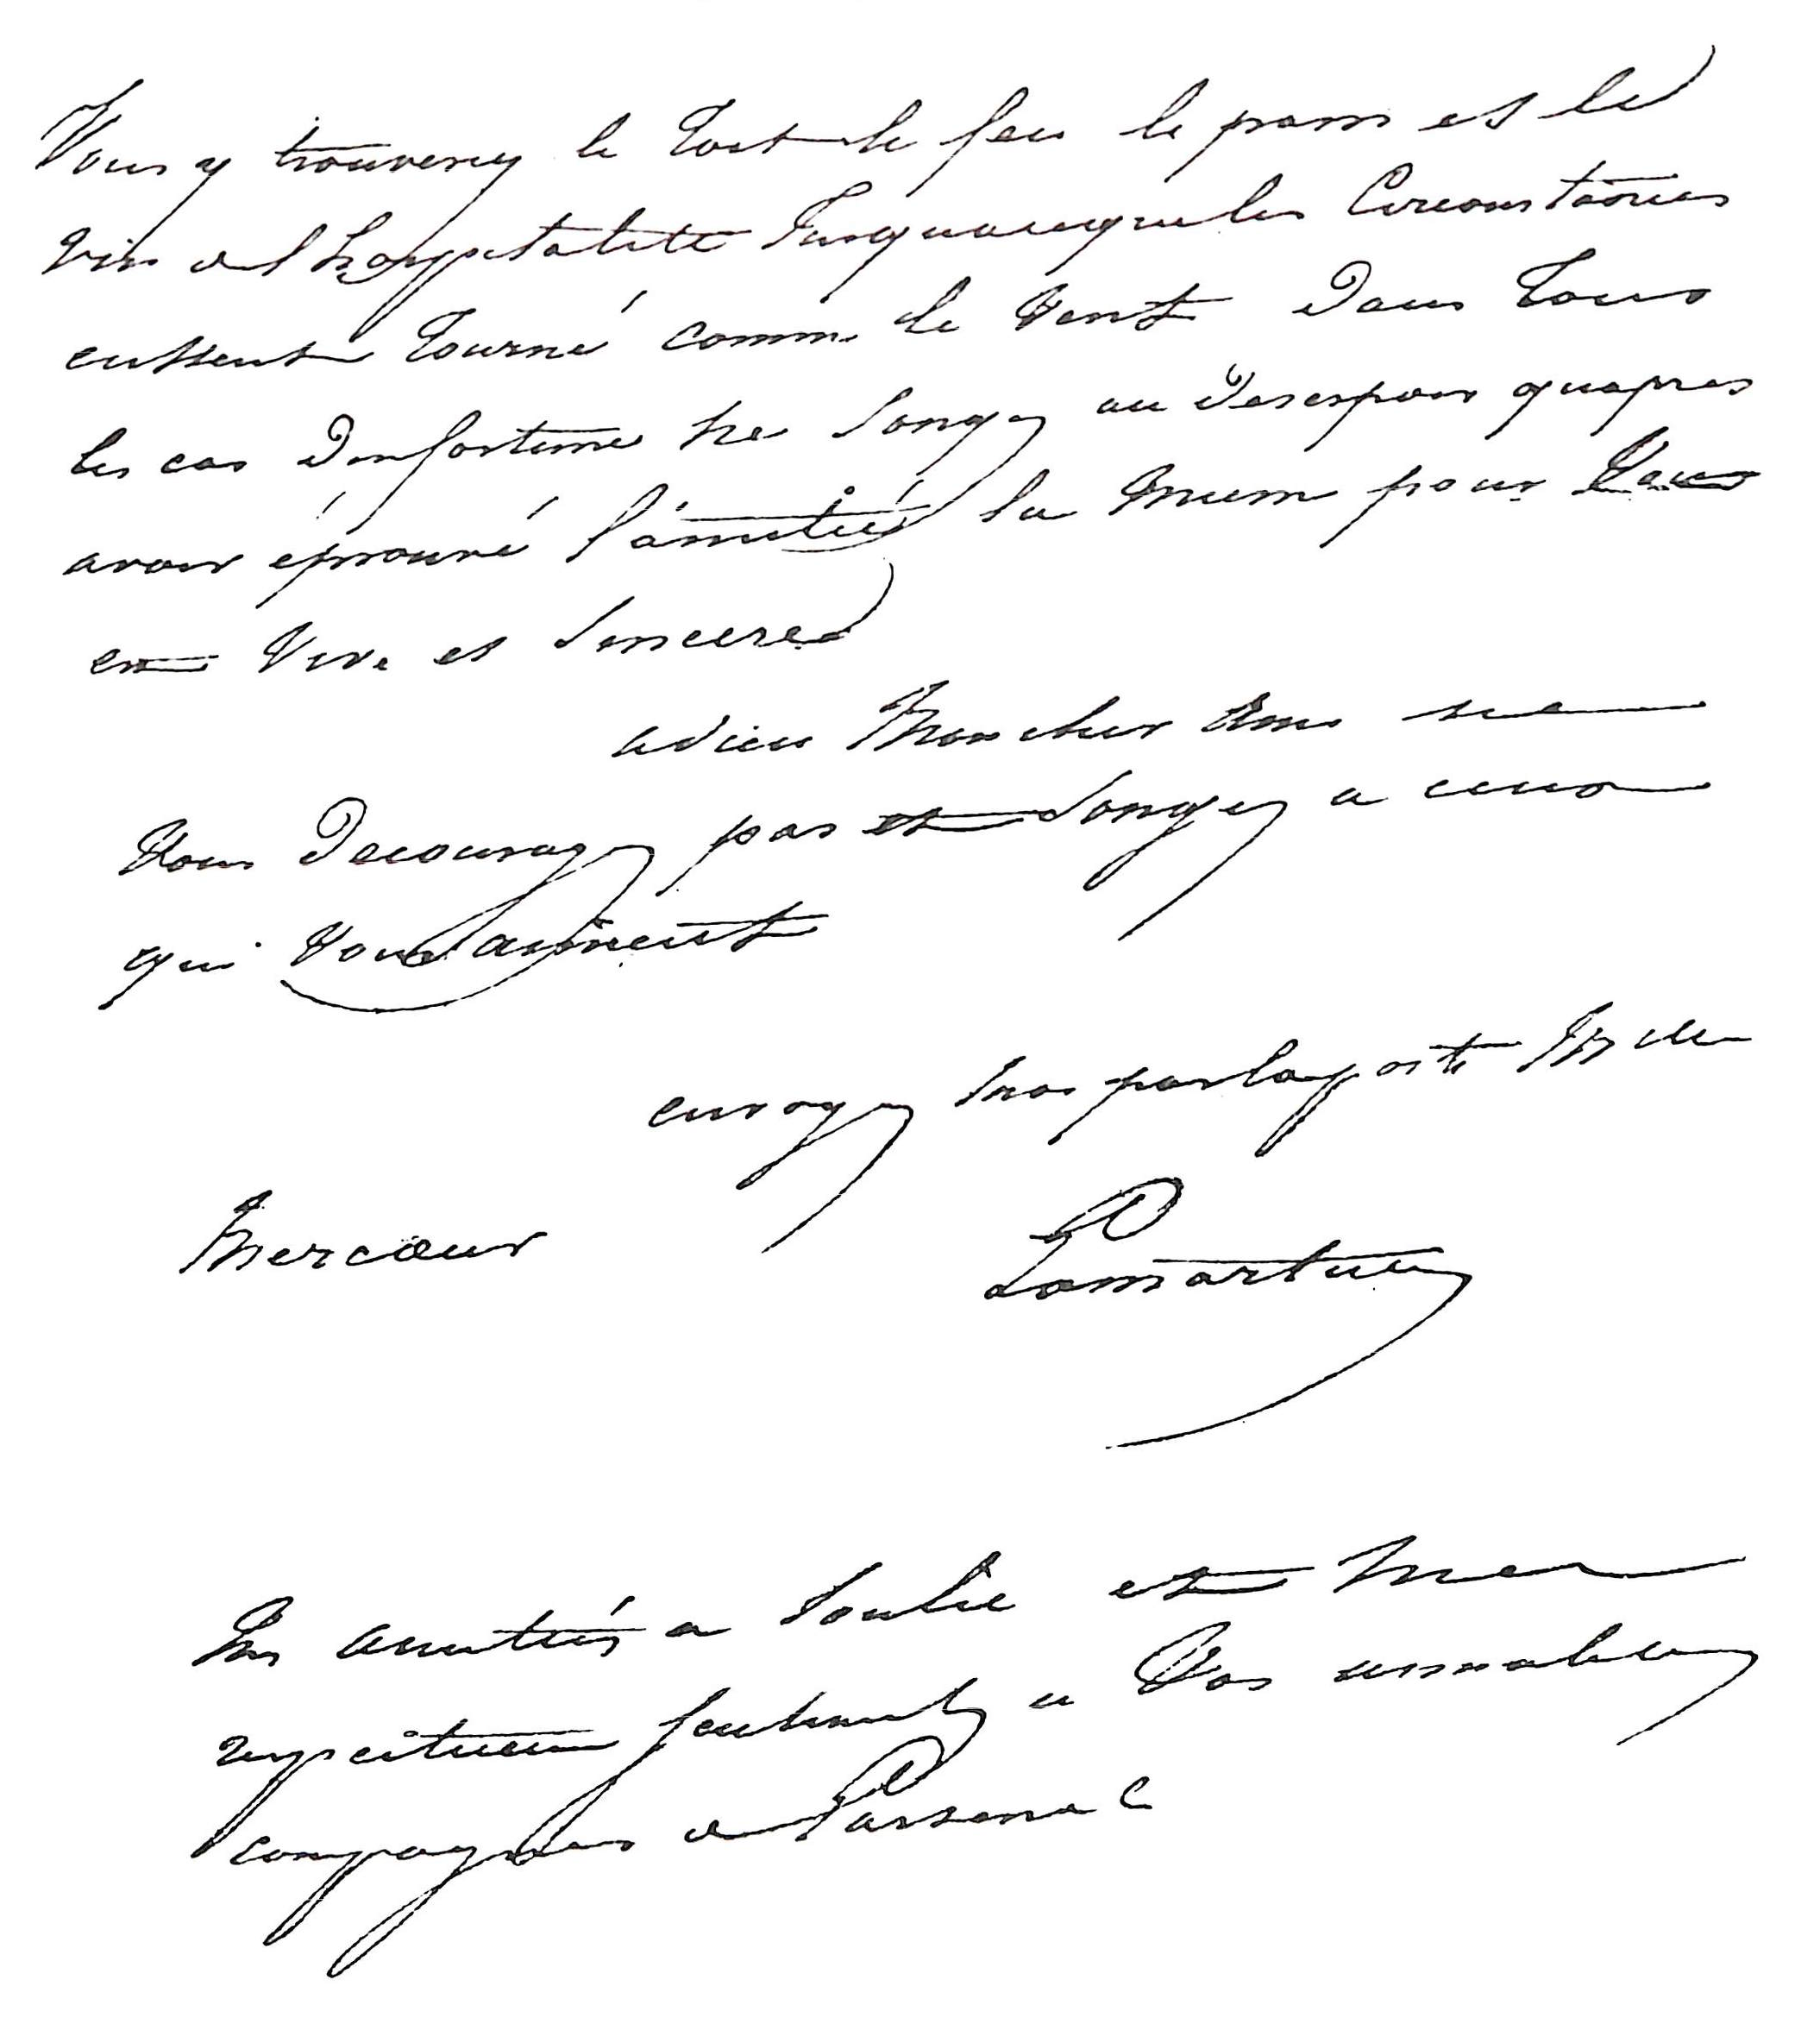 Vous y trouverez le toit le feu le pain et le
vin et l'hospitalité jusqu'à ce que les circonstances
eussent tourné comme le vent dans tous
les cas d'infortune ne songez au desespoir qu'apres
avoir éprouvé l'amitié la mienne pour vous
est vive et sincere
adieu mon cher ami ne
vous decouragez pas et songez a ceux
qui vous aiment
envoyez moi par la poste Mlle
Mercœur
Lamartine
mes amitiés a et mes
respectueux sentiments a vos aimables
compagnes